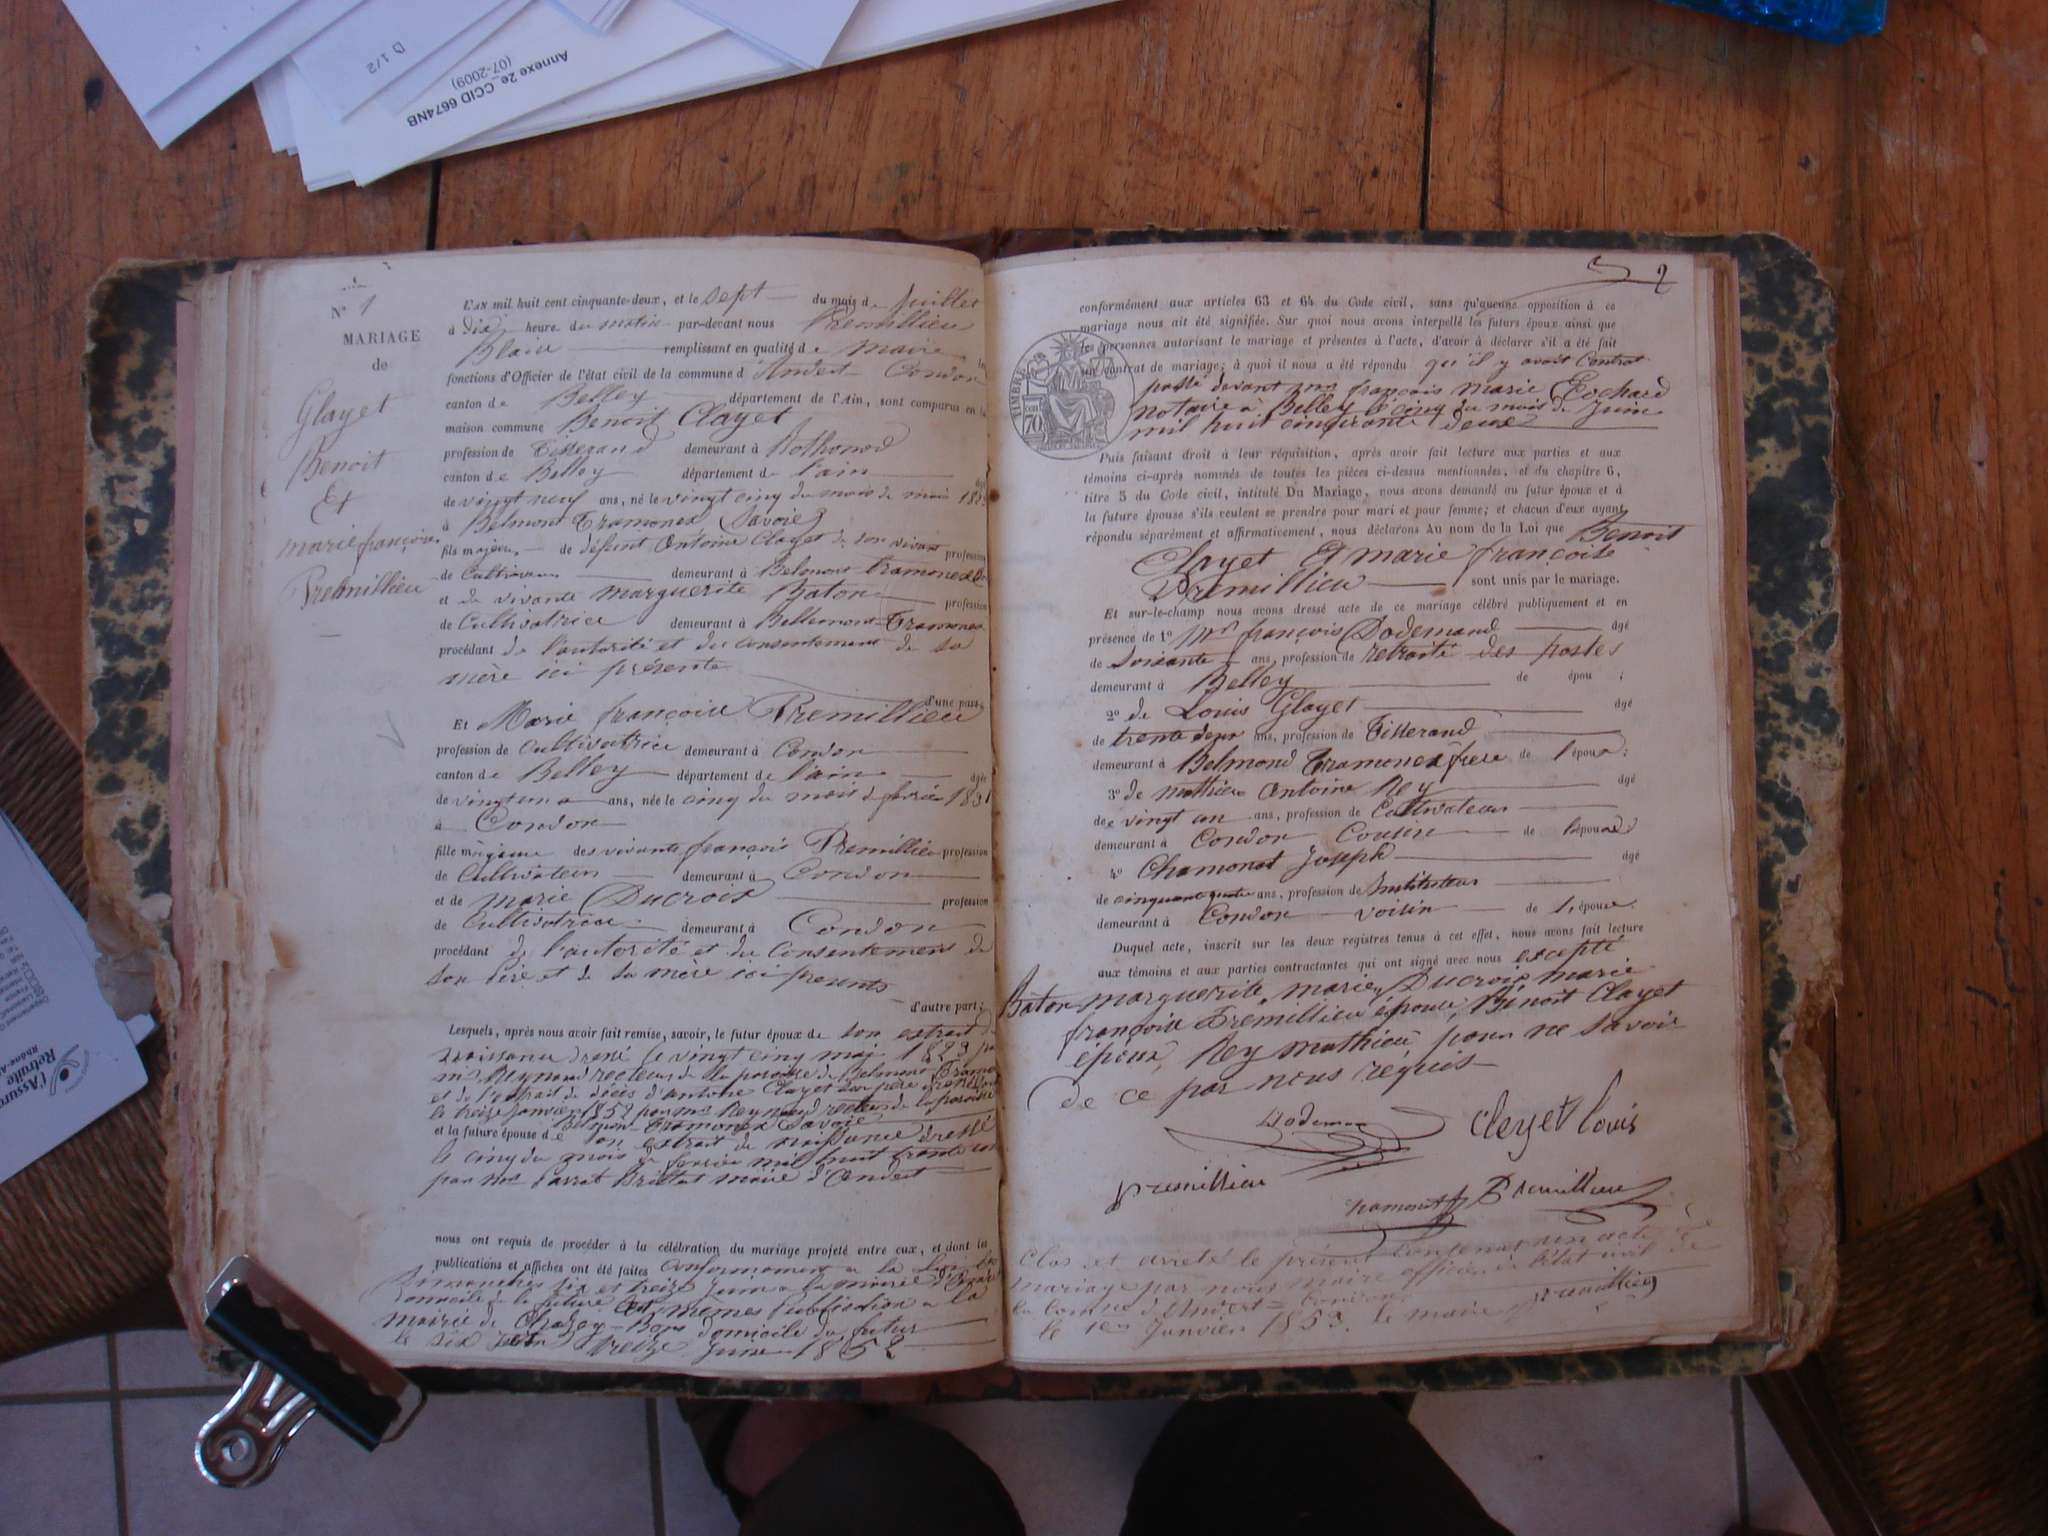 D 1/2
Annexe 2e_CCID 6674NB
(07-2009)
N° 1
MARIAGE
de
Glayet
Benoit
Et
marie françoise
Premillieu
L'AN mil huit cent cinquante-deux, et le sept du mois de Juillet
à dix heure du matin par-devant nous Premillieu
Blaise remplissant en qualité de maire les
fonctions d'Officier de l'état civil de la commune d'Andert Condon
canton de Belley département de l'Ain, sont comparus en la
maison commune Benoit Clayet
profession de Tisserand demeurant à Rothonod
canton de Belley département de l'ain âgé
de vingt neuf ans, né le vingt cinq du mois de mai 1823
à Belmont Tramonex (Savoie)
fils majeur de défunt Antoine Clayet de son vivant profession
de Cultivateur demeurant à Belmont Tramonex
et de vivante marguerite Baton profession
de Cultivatrice demeurant à Bellemont Tramonex
procédant de l'autorité et du consentement de sa
mère ici présente
d'une part;
Et Marie françoise Premillieu
profession de Cultivatrice demeurant à Condon
canton de Belley département de l'ain âgée
de vingt un ans, née le cinq du mois de février 1831
à Condon
fille majeure des vivants françois Premillieu profession
de Cultivateur demeurant à Condon
et de marie Ducroix profession
de Cultivatrice demeurant à Condon
procédant de l'autorité et du Consentement de
son père et de sa mère ici présents
d'autre part;
Lesquels, après nous avoir fait remise, savoir, le futur époux de son extrait de
naissance dressé le vingt cinq mai 1823 par
mr Reynaud recteur de la paroisse de Belmont Tramonex
et de l'extrait de décès d'antoine Clayet son père dressé
le treize janvier 1852 par mr Reynaud recteur de la paroisse
Belmont Tramonex Savoie
et la future épouse de son extrait de naissance dressé
le cinq du mois de février mil huit trente un
par mr Parrat Brillat maire d'Andert
nous ont requis de procéder à la célébration du mariage projeté entre eux, et dont les
publications et affiches ont été faites Conformément a la loi les
dimanches six et treize Juin a la mairie d'Andert
domicile de la future Et mêmes publication a la
mairie de Chazey-Bons domicile du futur
le six et treize Juin 1852
2
TIMBRE
70
conformément aux articles 63 et 64 du Code civil, sans qu'aucune opposition à ce
mariage nous ait été signifiée. Sur quoi nous avons interpellé les futurs époux ainsi que
les personnes autorisant le mariage et présentes à l'acte, d'avoir à déclarer s'il a été fait
un contrat de mariage; à quoi il nous a été répondu qu'il y avait Contrat
passé devant mr françois marie Cochard
notaire à Belley le cinq du mois de Juin
mil huit cinquante deux
Puis faisant droit à leur réquisition, après avoir fait lecture aux parties et aux
témoins ci-après nommés de toutes les pièces ci-dessus mentionnées, et du chapitre 6,
titre 5 du Code civil, intitulé Du Mariage, nous avons demandé au futur époux et à
la future épouse s'ils veulent se prendre pour mari et pour femme; et chacun d'eux ayant
répondu séparément et affirmativement, nous déclarons Au nom de la Loi que Benoit
Clayet Et marie françoise
Premillieu sont unis par le mariage.
Et sur-le-champ nous avons dressé acte de ce mariage célébré publiquement et en
présence de 1° Mr françois Dodemand âgé
de Soixante ans, profession de retraité des postes
demeurant à Belley de épou ;
2° de Louis Glayet âgé
de trente deux ans, profession de Tisserand
demeurant à Belmond Tramonex frère de l'époux;
3° de mathieu Antoine Rey âgé
de vingt un ans, profession de Cultivateur
demeurant à Condon Cousin de l'épouse
4° Chamonat Joseph âgé
de cinquante quatre ans, profession de Instituteur
demeurant à Condon voisin de l'épouse
Duquel acte, inscrit sur les deux registres tenus à cet effet, nous avons fait lecture
aux témoins et aux parties contractantes qui ont signé avec nous excepté
Bâton marguerite, marie Ducroix, marie
françoise Premillieu épouse, Bénoit Clayet
époux, Rey mathieu pour ne savoir
de ce par nous réquis
Dodeman
Cleyet louis
premillieu
Premillieu
Clos et arrêté le présent Contenant un acte de
mariage par nous maire officier de l'état civil de
la Comune d'Andert-Condon
le 1er Janvier 1853. le maire premillieu
l'Assurance
Retraite